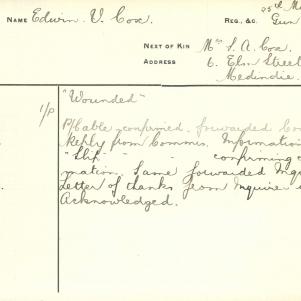 NAME Edwin V Cox. REG., &C. 25th M
Gun
NEXT OF KIN Mrs S. A. Cox.
ADDRESS 6. Elm Street
Medindie.
"Wounded"
1/P P/Cable confirmed. forwarded Co
Reply from Commis. Information
"Slip" " - confirming
mation. Same forwarded Inqu
Letter of thanks from Inquirer
Acknowledged.